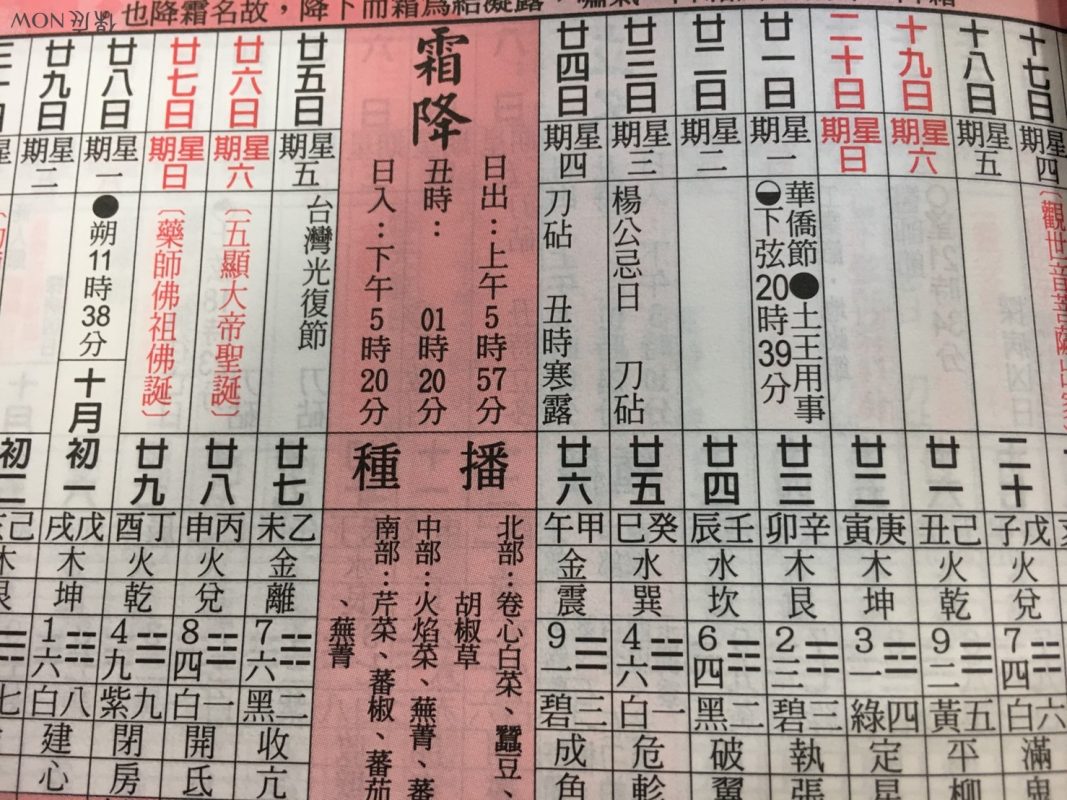 露凝結為霜而下降，故名霜降也
十七日
星期四
〔觀世音菩薩出家〕
十八日
星期五
二十
戊子
火
兌
7
四
六白
滿
鬼
十九日
星期六
廿一
己丑
火
乾
9
二
五黃
平
柳
二十日
星期日
廿二
庚寅
木
坤
3
一
四綠
定
星
廿一日
星期一
華僑節●土王用事
下弦20時39分
廿三
辛卯
木
艮
2
三
三碧
執
張
廿二日
星期二
廿四
壬辰
水
坎
6
四
二黑
破
翼
廿三日
星期三
楊公忌日 刀砧
廿五
癸巳
水
巽
4
六
一白
危
軫
廿四日
星期四
刀砧 丑時寒露
廿六
甲午
金
震
9
一
三碧
成
角
霜降
日出：上午5時57分
丑時： 01時20分
日入：下午5時20分
播種
北部：卷心白菜、蠶豆、
胡椒草
中部：火焰菜、蕪菁、蕃
南部：芹菜、蕃椒、蕃茄
、蕪菁
廿五日
星期五
台灣光復節
廿七
乙未
金
離
7
六
二黑
收
亢
廿六日
星期六
〔五顯大帝聖誕〕
廿八
丙申
火
兌
8
四
一白
開
氐
廿七日
星期日
〔藥師佛祖佛誕〕
廿九
丁酉
火
乾
4
九
九紫
閉
房
廿八日
星期一
●朔11時38分
十月初一
戊戌
木
坤
1
六
八白
建
心
廿九日
星期二
初二
己亥
木
艮
七